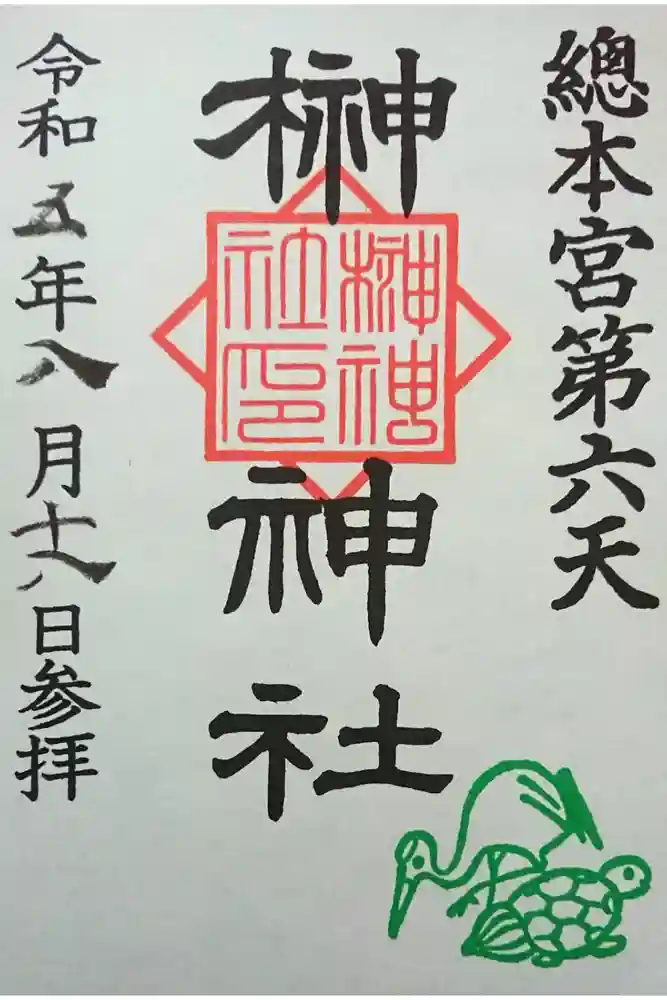 總本宮第六天
榊神社
榊神
社印
令和五年八月十八日参拝